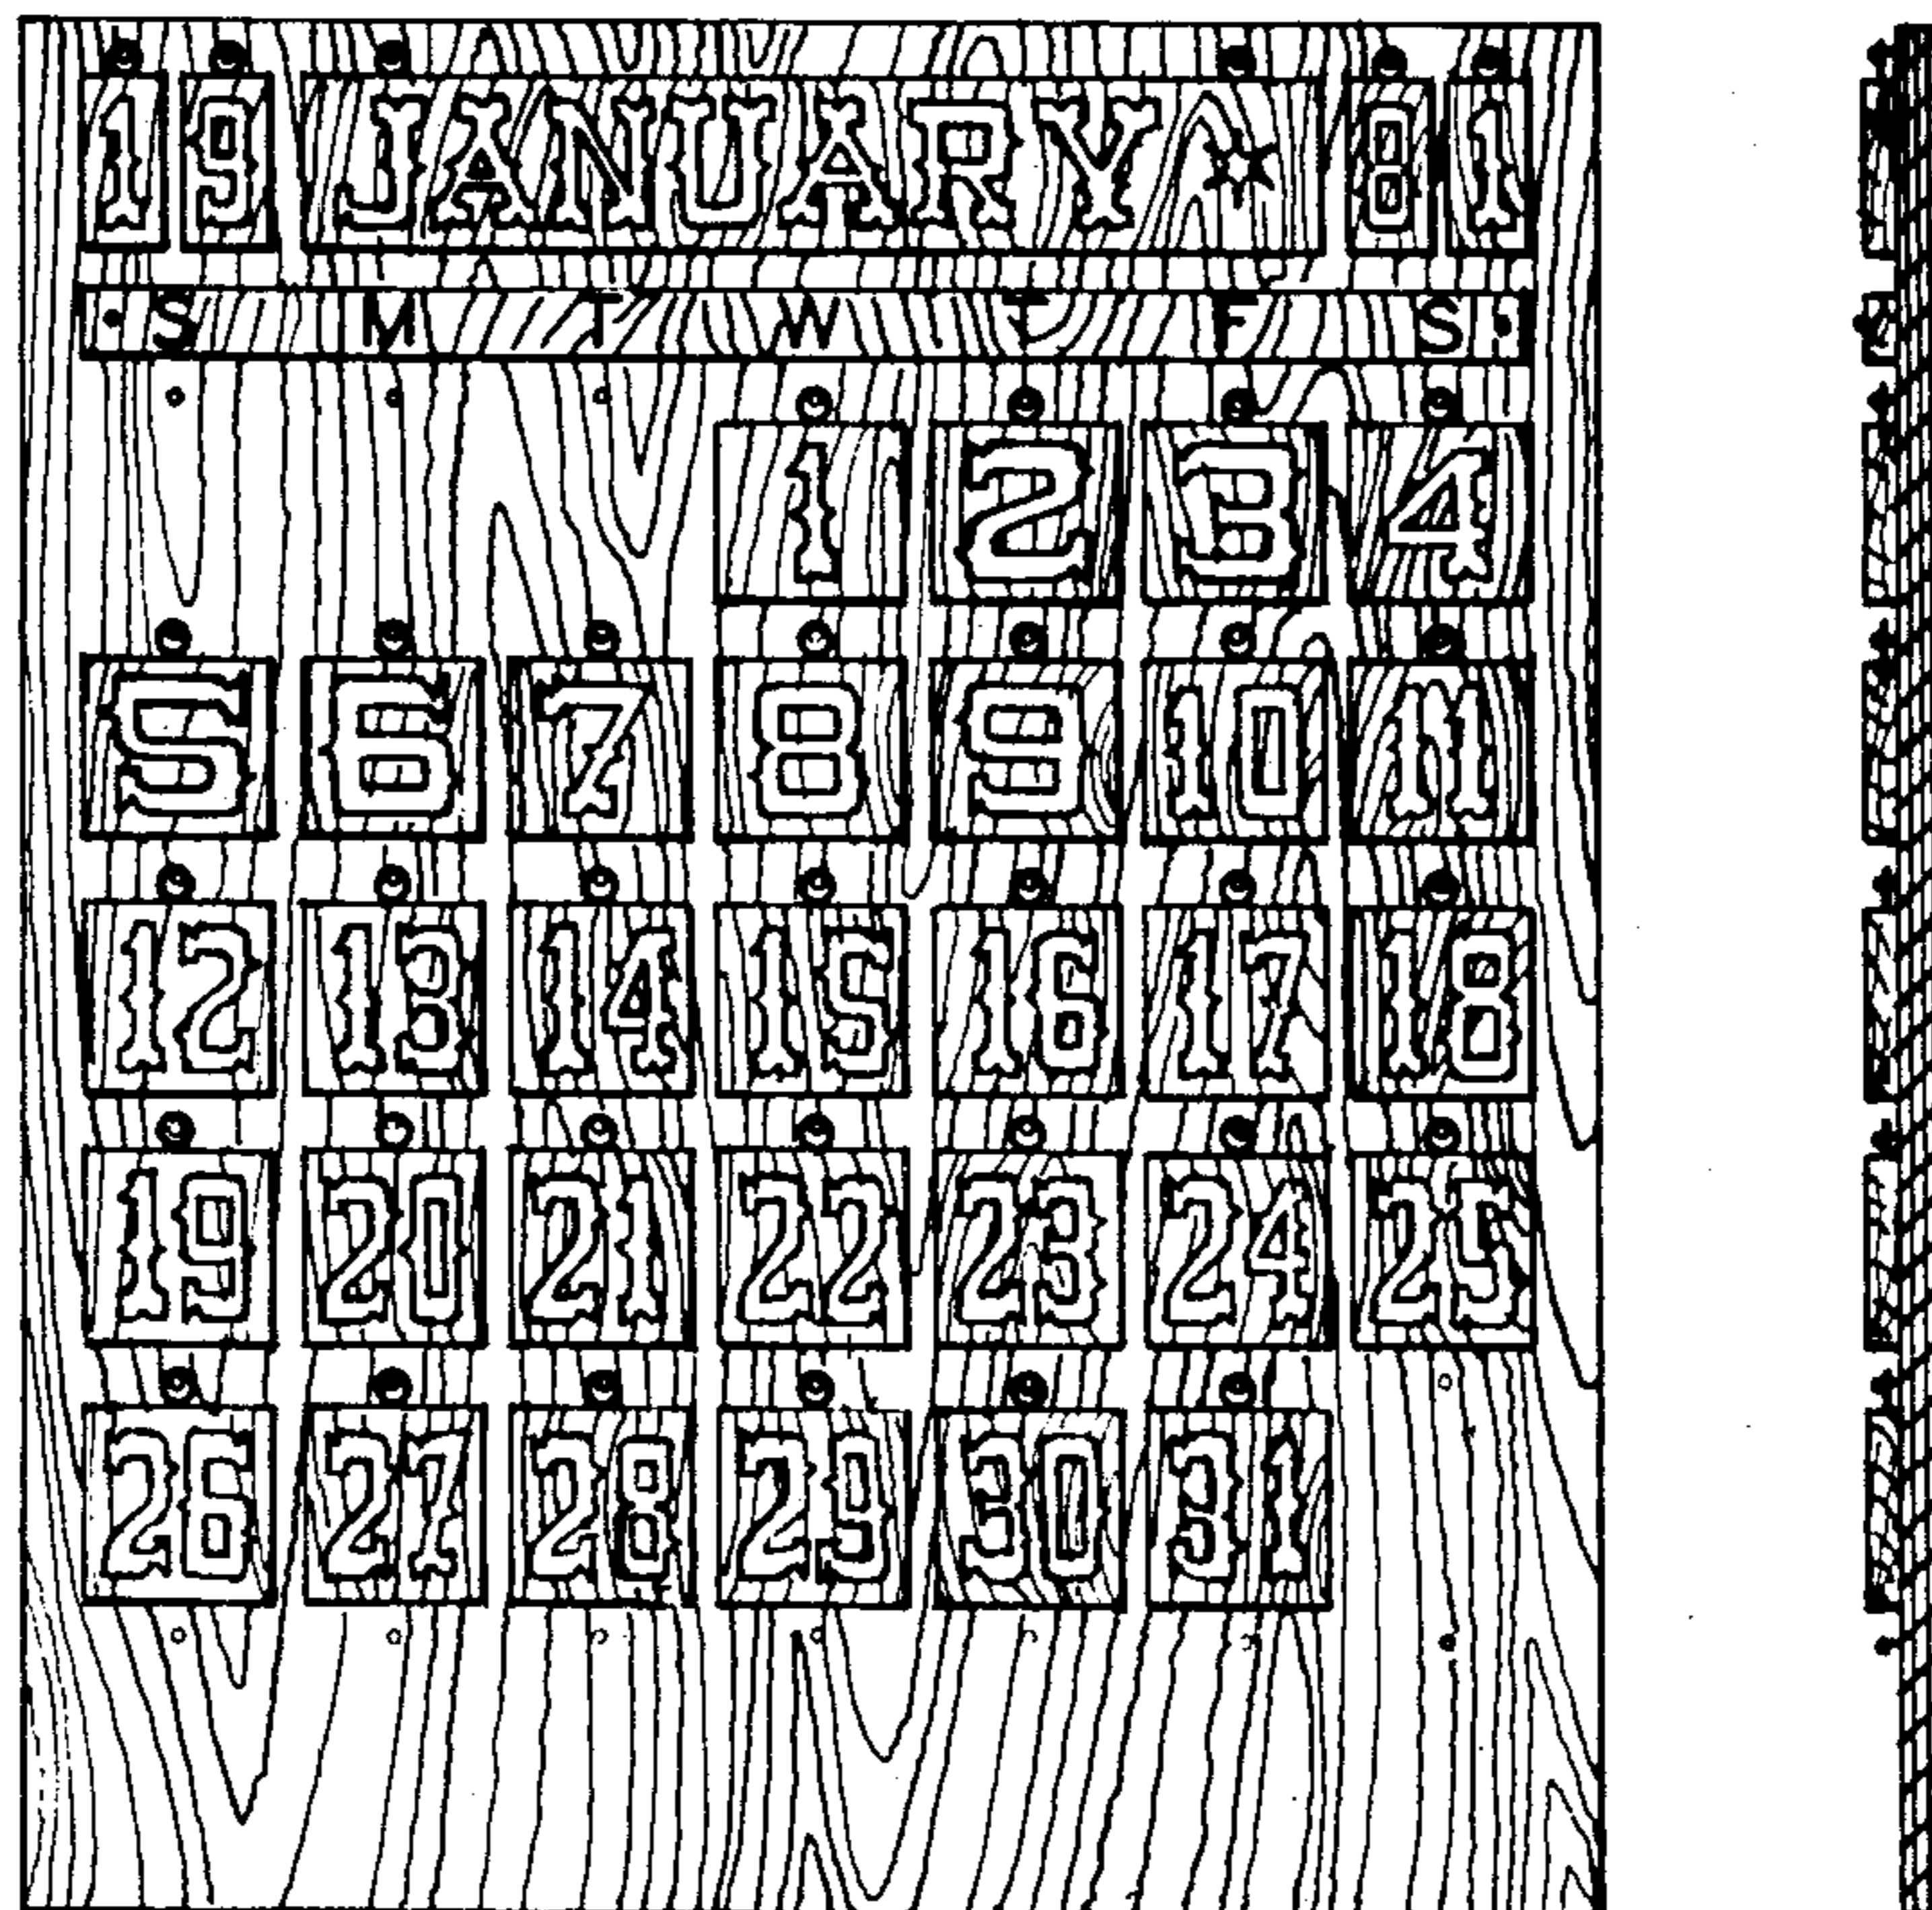 19 JANUARY☆ 81
S M T W T F S
1 2 3 4
5 6 7 8 9 10 11
12 13 14 15 16 17 18
19 20 21 22 23 24 25
26 27 28 29 30 31